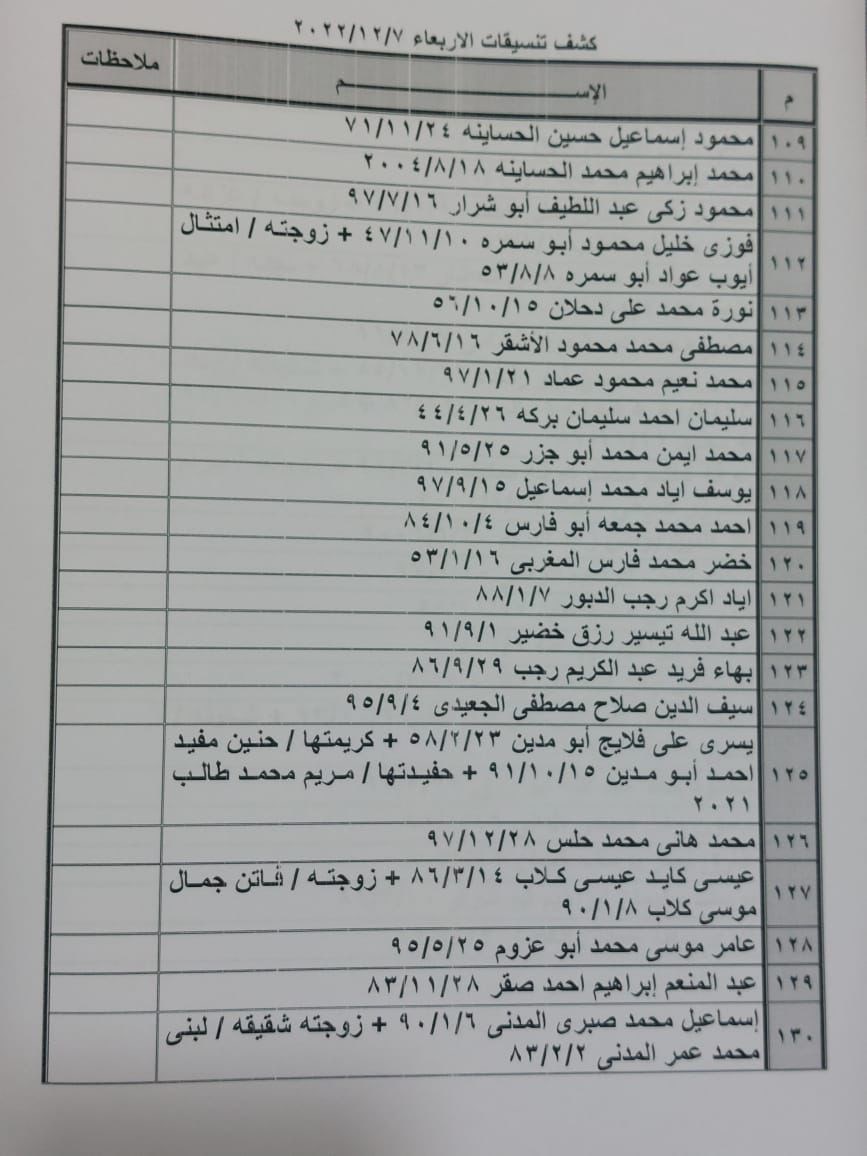 كشف تنسيقات الاربعاء ٢٠٢٢/١٢/٧
م الإســـــم ملاحظات
١٠٩ محمود إسماعيل حسين الحساينه ٧١/١١/٢٤
١١٠ محمد إبراهيم محمد الحساينه ٢٠٠٤/٨/١٨
١١١ محمود زكى عبد اللطيف أبو شرار ٩٧/٧/١٦
١١٢ فوزى خليل محمود أبو سمره ٤٧/١١/١٠ + زوجته / امتثال
أيوب عواد أبو سمره ٥٣/٨/٨
١١٣ نورة محمد على دحلان ٥٦/١٠/١٥
١١٤ مصطفى محمد محمود الأشقر ٧٨/٦/١٦
١١٥ محمد نعيم محمود عماد ٩٧/١/٢١
١١٦ سليمان احمد سليمان بركه ٤٤/٤/٢٦
١١٧ محمد ايمن محمد أبو جزر ٩١/٥/٢٥
١١٨ يوسف اياد محمد إسماعيل ٩٧/٩/١٥
١١٩ احمد محمد جمعه أبو فارس ٨٤/١٠/٤
١٢٠ خضر محمد فارس المغربى ٥٣/١/١٦
١٢١ اياد اكرم رجب الدبور ٨٨/١/٧
١٢٢ عبد الله تيسير رزق خضير ٩١/٩/١
١٢٣ بهاء فريد عبد الكريم رجب ٨٦/٩/٢٩
١٢٤ سيف الدين صلاح مصطفى الجعيدى ٩٥/٩/٤
١٢٥ يسرى على فلايج أبو مدين ٥٨/٢/٢٣ + كريمتها / حنين مفيد
احمد أبو مدين ٩١/١٠/١٥ + حفيدتها / مريم محمد طالب
٢٠٢١
١٢٦ محمد هانى محمد حلس ٩٧/١٢/٢٨
١٢٧ عيسى كايد عيسى كلاب ٨٦/٣/١٤ + زوجته / فاتن جمال
موسى كلاب ٩٠/١/٨
١٢٨ عامر موسى محمد أبو عزوم ٩٥/٥/٢٥
١٢٩ عبد المنعم إبراهيم احمد صقر ٨٣/١١/٢٨
١٣٠ إسماعيل محمد صبرى المدنى ٩٠/١/٦ + زوجته شقيقه / لبنى
محمد عمر المدنى ٨٣/٢/٢